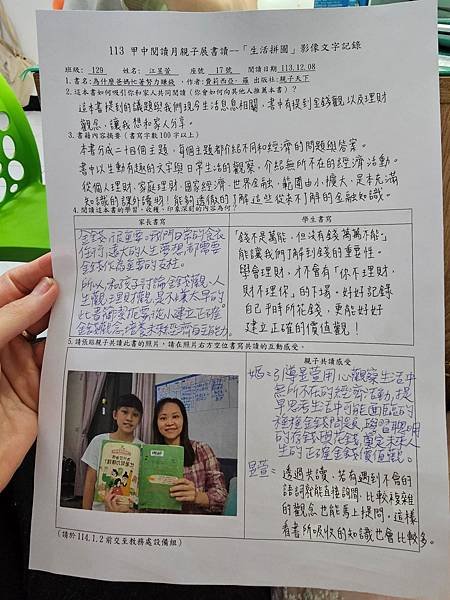 113 甲中閱讀月親子展書讀--「生活拼圖」影像文字記錄
班級：129 姓名：江昱萱 座號 17號 閱讀日期113.12.08
1.書名：為什麼爸媽忙著努力賺錢，作者：費莉西亞·羅 出版社：親子天下
2.這本書如何吸引你和家人共同閱讀（你會如何向其他人推薦本書）？
這本書提到的議題與我們現今生活息息相關，書中有提到金錢觀以及理財
觀念，讓我想和家人分享。
3.書籍內容摘要（書寫字數100字以上）
本書分成二十個主題，每個主題都介紹不同和經濟的問題與答案。
書中以生動有趣的文字與日常生活的觀察，介紹無所不在的經濟活動。
從個人理財、家庭理財、國家經濟、世界金融，範圍由小擴大，是本充滿
知識的課外讀財！能夠透徹的了解這些從來不了解的金融知識。
4.閱讀這本書的學習、收穫、印象深刻的內容為何？
家長書寫
金錢很重要，我們日常的食衣
住行、遠大的人生夢想都需要
金錢作為重要的支柱。
所以和孩子討論金錢觀、人
生觀、理財觀是不嫌太早的
金錢觀念，培養未來經濟自主能力。
學生書寫
「錢不是萬能，但沒有錢萬萬不能」
能讓我們了解到錢的重要性。
學會理財，才不會有「你不理財，
財不理你」的下場。好好記錄
自己平時所花錢，更能好好
建立正確的價值觀！
5.請張貼親子共讀此書的照片，請在照片右方空位書寫共讀的互動感受。
親子共讀感受
媽：引導昱萱用心觀察生活中
無所不在的經濟活動，提
早思考生活中可能面臨的
種種金錢問題，學習聰明
的存錢與花錢，奠定未來人
生的正確金錢價值觀。
昱萱：透過共讀，若有遇到不會的
語詞就能直接詢問，比較複雜
的觀念也能馬上提問。這樣
看書所吸收的知識也會比較多。
(請於114.1.2前交至教務處設備組)